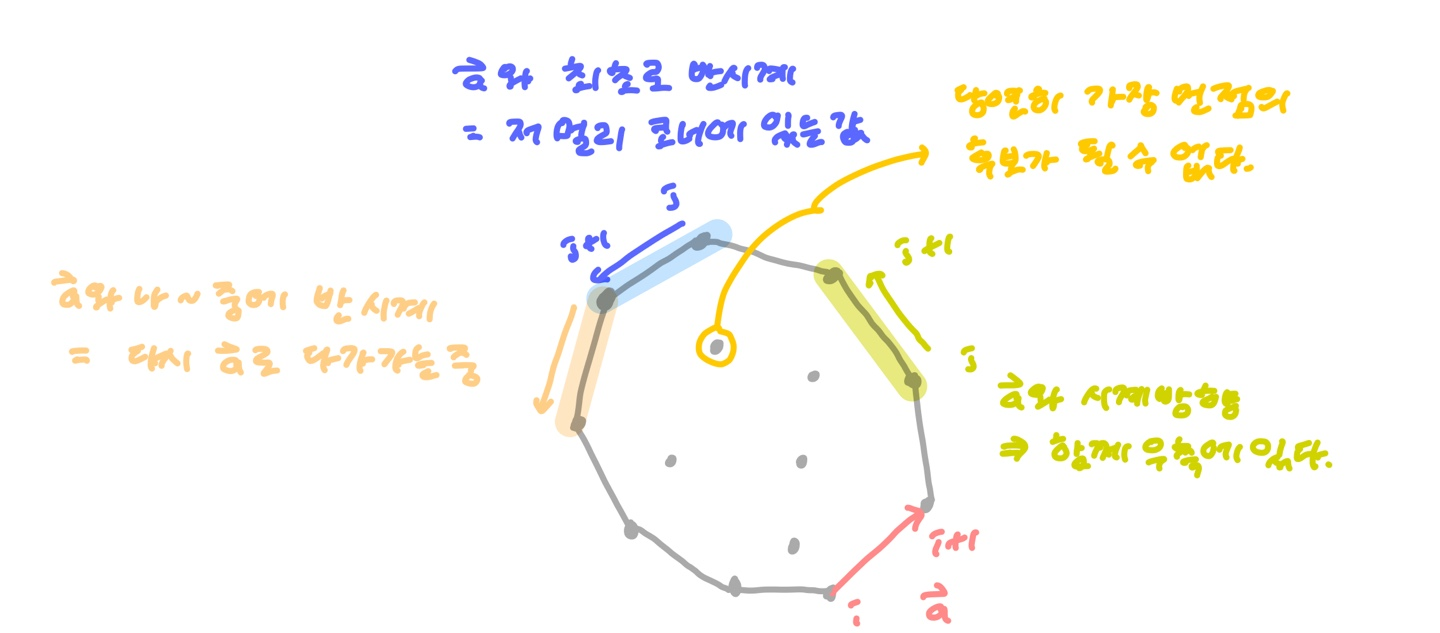 a와 최초로 반시계
= 저 멀리 코너에 있는 값
당연히 가장 먼점의
후보가 될 수 없다.
j
j+1
j+1
a와 나~중에 반시계
= 다시 a로 다가가는 중
j
a와 시계방향
⇒ 함께 우측에 있다.
i+1
i
a